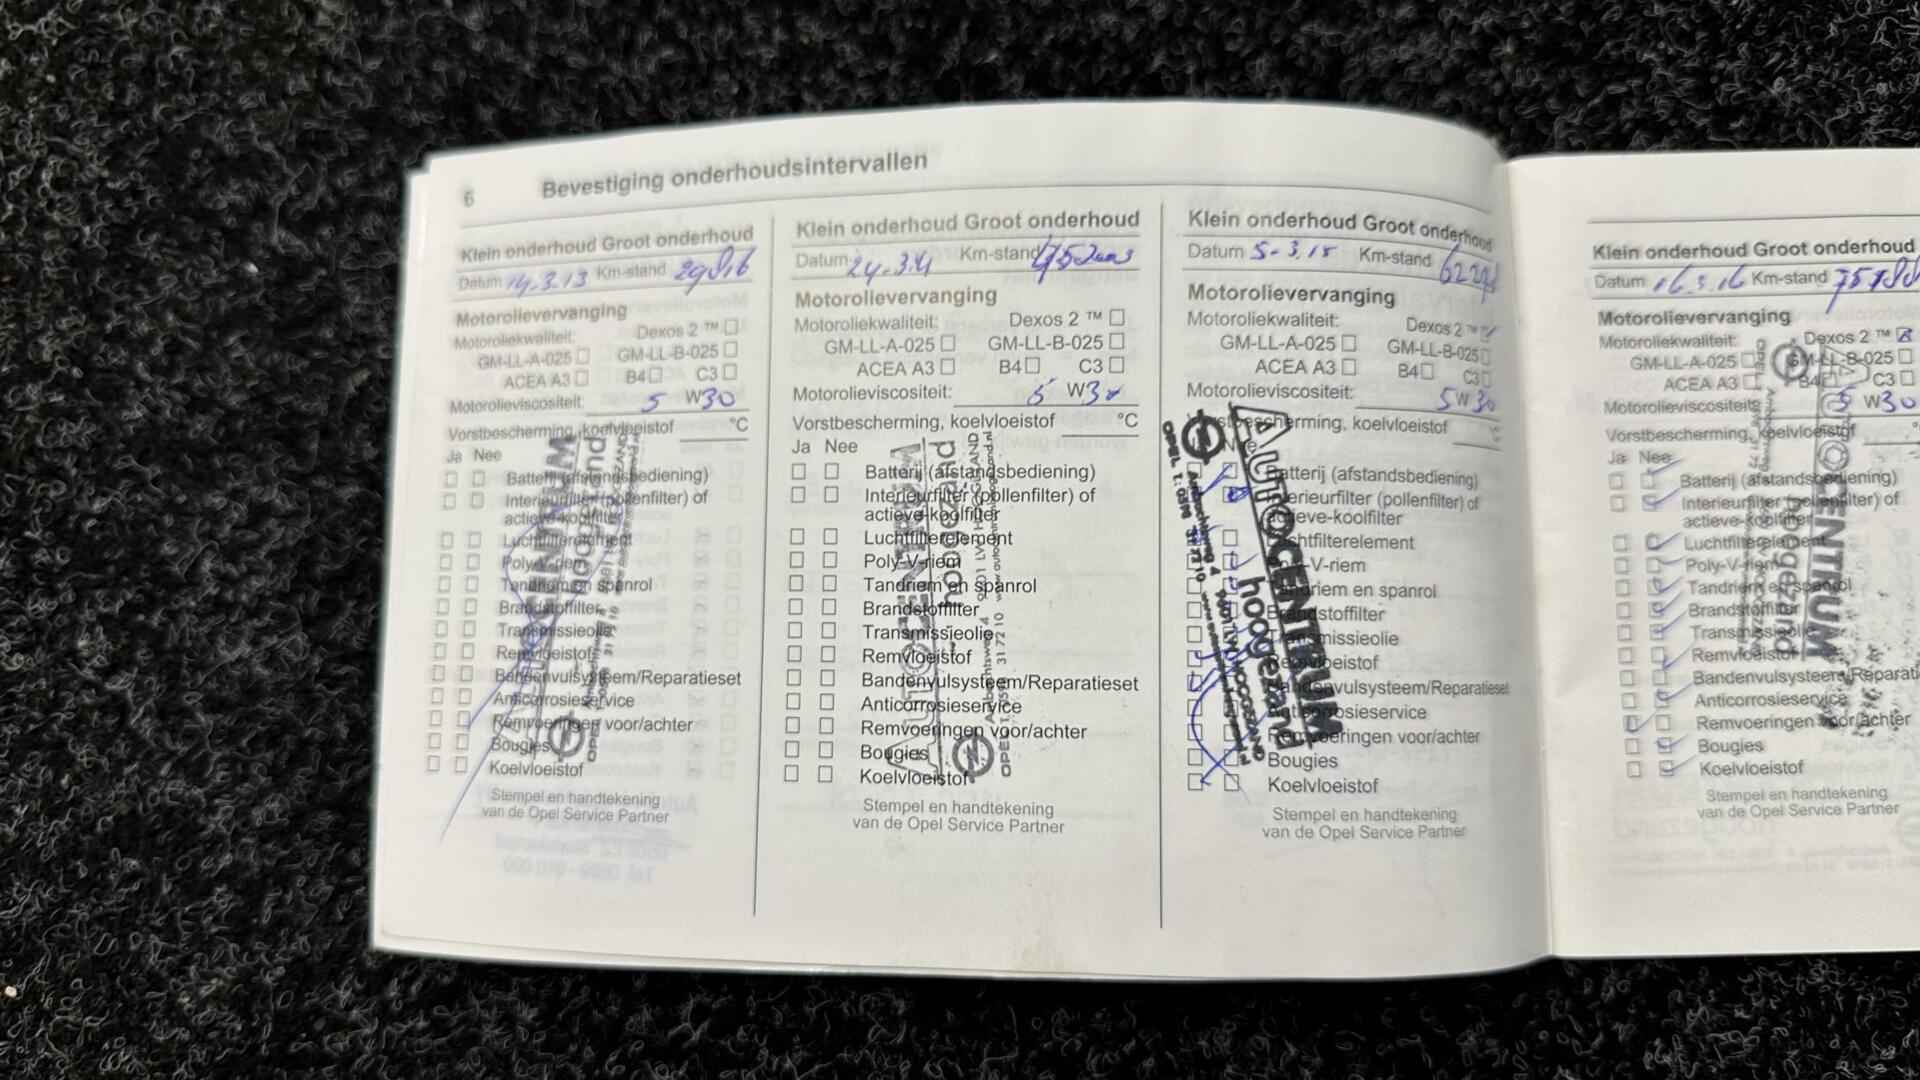 6 Bevestiging onderhoudsintervallen
Klein onderhoud Groot onderhoud
Datum 14.3.13 Km-stand
Motorolievervanging
Motoroliekwaliteit: Dexos 2 ™ ☐
GM-LL-A-025 ☐ GM-LL-B-025 ☐
ACEA A3 ☐ B4 ☐ C3 ☐
Motorolieviscositeit: 5 W30
Vorstbescherming, koelvloeistof °C
Ja Nee
☐ ☐ Batterij (afstandsbediening)
☐ ☐ Interieurfilter (pollenfilter) of
actieve-koolfilter
☐ ☐ Luchtfilterelement
☐ ☐ Poly-V-riem
☐ ☐ Tandriem en spanrol
☐ ☐ Brandstoffilter
☐ ☐ Transmissieolie
☐ ☐ Remvloeistof
☐ ☐ Bandenvulsysteem/Reparatieset
☐ ☐ Anticorrosieservice
☐ ☐ Remvoeringen voor/achter
☐ ☐ Bougies
☐ ☐ Koelvloeistof
Stempel en handtekening
van de Opel Service Partner
Klein onderhoud Groot onderhoud
Datum Km-stand
Motorolievervanging
Motoroliekwaliteit: Dexos 2 ™ ☐
GM-LL-A-025 ☐ GM-LL-B-025 ☐
ACEA A3 ☐ B4 ☐ C3 ☐
Motorolieviscositeit: 5 W30
Vorstbescherming, koelvloeistof °C
Ja Nee
☐ ☐ Batterij (afstandsbediening)
☐ ☐ Interieurfilter (pollenfilter) of
actieve-koolfilter
☐ ☐ Luchtfilterelement
☐ ☐ Poly-V-riem
☐ ☐ Tandriem en spanrol
☐ ☐ Brandstoffilter
☐ ☐ Transmissieolie
☐ ☐ Remvloeistof
☐ ☐ Bandenvulsysteem/Reparatieset
☐ ☐ Anticorrosieservice
☐ ☐ Remvoeringen voor/achter
☐ ☐ Bougies
☐ ☐ Koelvloeistof
AUTOCENTRUM
hoogezand
OPEL
Stempel en handtekening
van de Opel Service Partner
Klein onderhoud Groot onderhoud
Datum 5-3.15 Km-stand
Motorolievervanging
Motoroliekwaliteit: Dexos 2 ™
GM-LL-A-025 ☐ GM-LL-B-025 ☐
ACEA A3 ☐ B4 ☐ C3 ☐
Motorolieviscositeit: 5 W 30
koelvloeistof
Batterij (afstandsbediening)
Interieurfilter (pollenfilter) of
actieve-koolfilter
Luchtfilterelement
Poly-V-riem
Tandriem en spanrol
Brandstoffilter
Transmissieolie
Remvloeistof
Bandenvulsysteem/Reparatieset
Anticorrosieservice
Remvoeringen voor/achter
Bougies
Koelvloeistof
AUTOCENTRUM
hoogezand
OPEL
Stempel en handtekening
van de Opel Service Partner
Klein onderhoud Groot onderhoud
Datum 16.3.16 Km-stand
Motorolievervanging
Motoroliekwaliteit: Dexos 2 ™
GM-LL-A-025 ☐ GM-LL-B-025 ☐
ACEA A3 ☐ B4 C3 ☐
Motorolieviscositeit: 5 W30
Vorstbescherming, koelvloeistof
Ja Nee
Batterij (afstandsbediening)
Interieurfilter (pollenfilter) of
actieve-koolfilter
Luchtfilterelement
Poly-V-riem
Tandriem en spanrol
Brandstoffilter
Transmissieolie
Remvloeistof
Bandenvulsysteem/Reparati
Anticorrosieservice
Remvoeringen voor/achter
Bougies
Koelvloeistof
hoogezand
Stempel en handtekening
van de Opel Service Partner